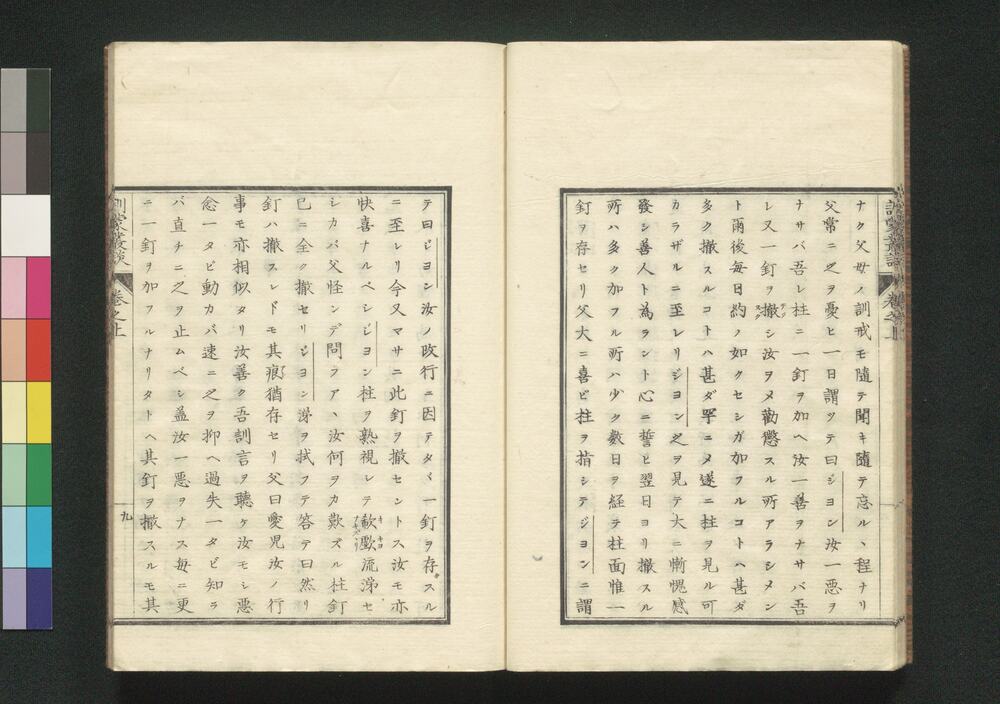 ナク父母ノ訓戒モ隨テ聞キ隨テ忘ルヽ程ナリ
父常ニ之ヲ憂ヒ一日謂ツテ曰ジヨン汝一惡ヲ
ナサバ吾レ柱ニ一釘ヲ加ヘ汝一善ヲナサバ吾
レ又一釘ヲ撤シ汝ヲメ勸懲スル所アラシメン
ト爾後每日約ノ如クセシガ加フルコトハ甚ダ
多ク撤スルコトハ甚ダ罕ニメ遂ニ柱ヲ見ル可
カラザルニ至レリジヨン之ヲ見テ大ニ慚愧感
發シ善人ト為ラント心ニ誓ヒ翌日ヨリ撤スル
所ハ多ク加フル所ハ少ク數日ヲ経テ柱面惟一
釘ヲ存セリ父大ニ喜ビ柱ヲ指シテジヨンニ謂
テ曰ジヨン汝ノ改行ニ因テタヾ一釘ヲ存スル
ニ至レリ今又マサニ此釘ヲ撤セントス汝モ亦
快喜ナルベシジヨン柱ヲ熟視シテ欷歔流涕セ
シカバ父怪ンデ問ラアヽ汝何ヲカ歎ズル柱釘
已ニ全ク撤セリジヨン涕ヲ拭フテ答テ曰然リ
釘ハ撤スレドモ其痕猶存セリ父曰愛児汝ノ行
事モ亦相似タリ汝善ク吾訓言ヲ聽ケ汝モシ惡
念一タビ動カバ速ニ之ヲ抑ヘ過失一タビ知ラ
バ直チニ之ヲ止ムベシ盖汝一惡ヲナス每ニ更
ニ一釘ヲ加フルナリタトヘ其釘ヲ撤スルモ其
訓蒙叢談
卷之上
九